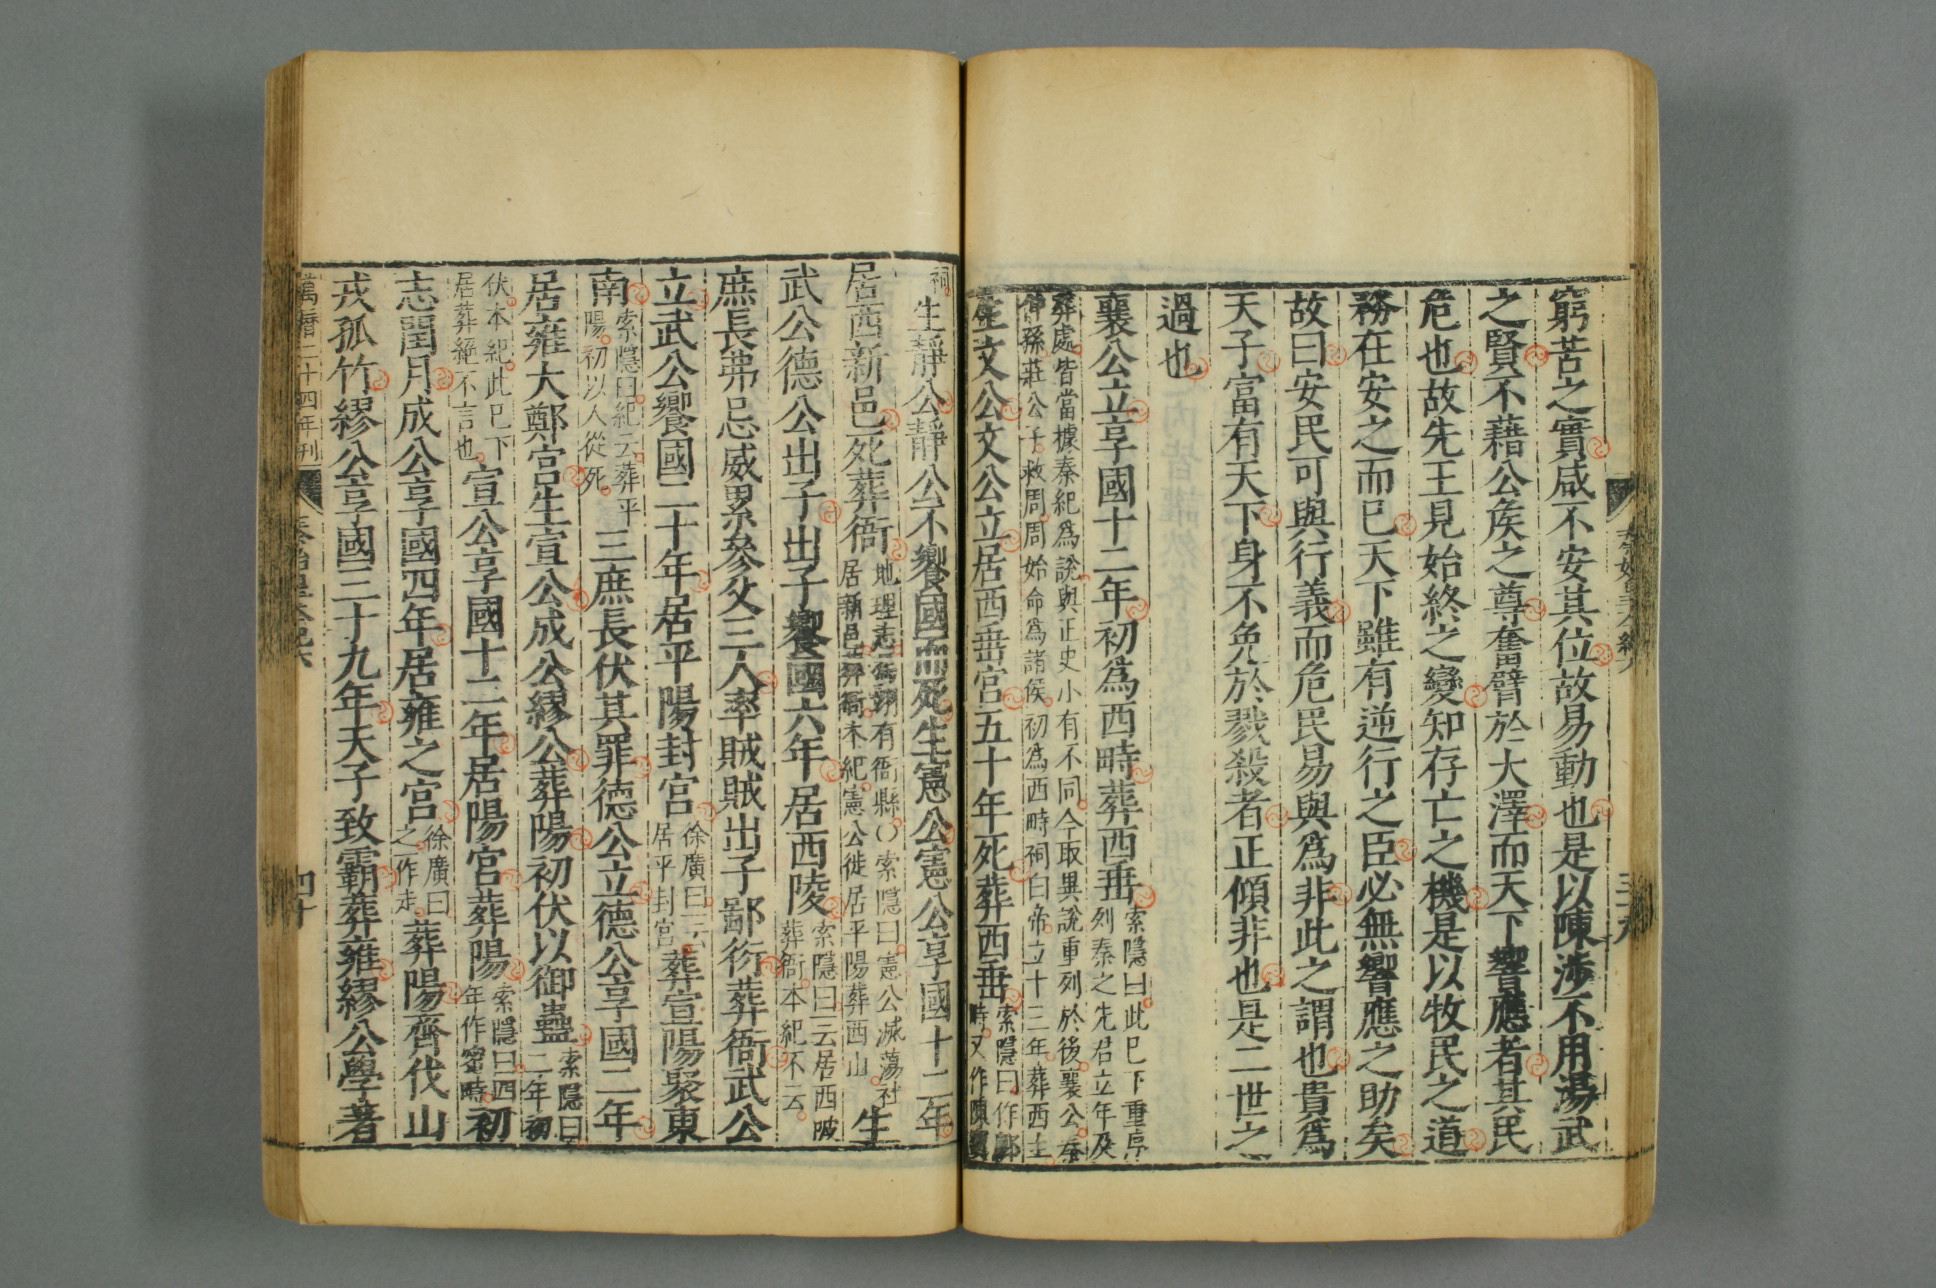 窮苦之實咸不安其位故易動也是以陳涉不用湯武
之賢不藉公矦之尊奮臂於大澤而天下響應者其民
危也故先王見始終之變知存亡之機是以牧民之道
務在安之而已天下雖有逆行之臣必無響應之助矣
故曰安民可與行義而危民易與爲非此之謂也貴爲
天子富有天下身不免於戮殺者正傾非也是二世之
過也
襄公立享國十二年初爲西畤葬西垂
索隱曰此已下重序
列秦之先君立年及
葬處皆當據秦紀爲說與正史小有不同今取異說重列於後襄公秦
仲孫莊公子救周周始命爲諸侯初爲西畤祠白帝立十三年葬西土
生文公文公立居西垂宮五十年死葬西垂
索隱曰作鄜
畤又作陳寶
祠
生靜公靜公不饗國而死生憲公憲公享國十二年
居西新邑死葬衙
地理志馮翊有衙縣○索隱曰憲公滅蕩社
居新邑葬衙本紀憲公徙居平陽葬西山
生
武公德公出子出子饗國六年居西陵
索隱曰云居西陂
葬衙本紀不云
庶長弗忌威累參父三人率賊賊出子鄙衍葬衙武公
立武公饗國二十年居平陽封宮
徐廣曰云
居平封宮
葬宣陽聚東
南
索隱曰紀云葬平
陽初以人從死
三庶長伏其罪德公立德公享國二年
居雍大鄭宮生宣公成公繆公葬陽初伏以御蠱
索隱曰
二年初
伏本紀此已下
居葬絕不言也
宣公享國十二年居陽宮葬陽
索隱曰四
年作密畤
初
志閏月成公享國四年居雍之宮
徐廣曰
之作走
葬陽齊伐山
戎孤竹繆公享國三十九年天子致霸葬雍繆公學著
萬曆二十四年刊
秦始皇本紀六
四十